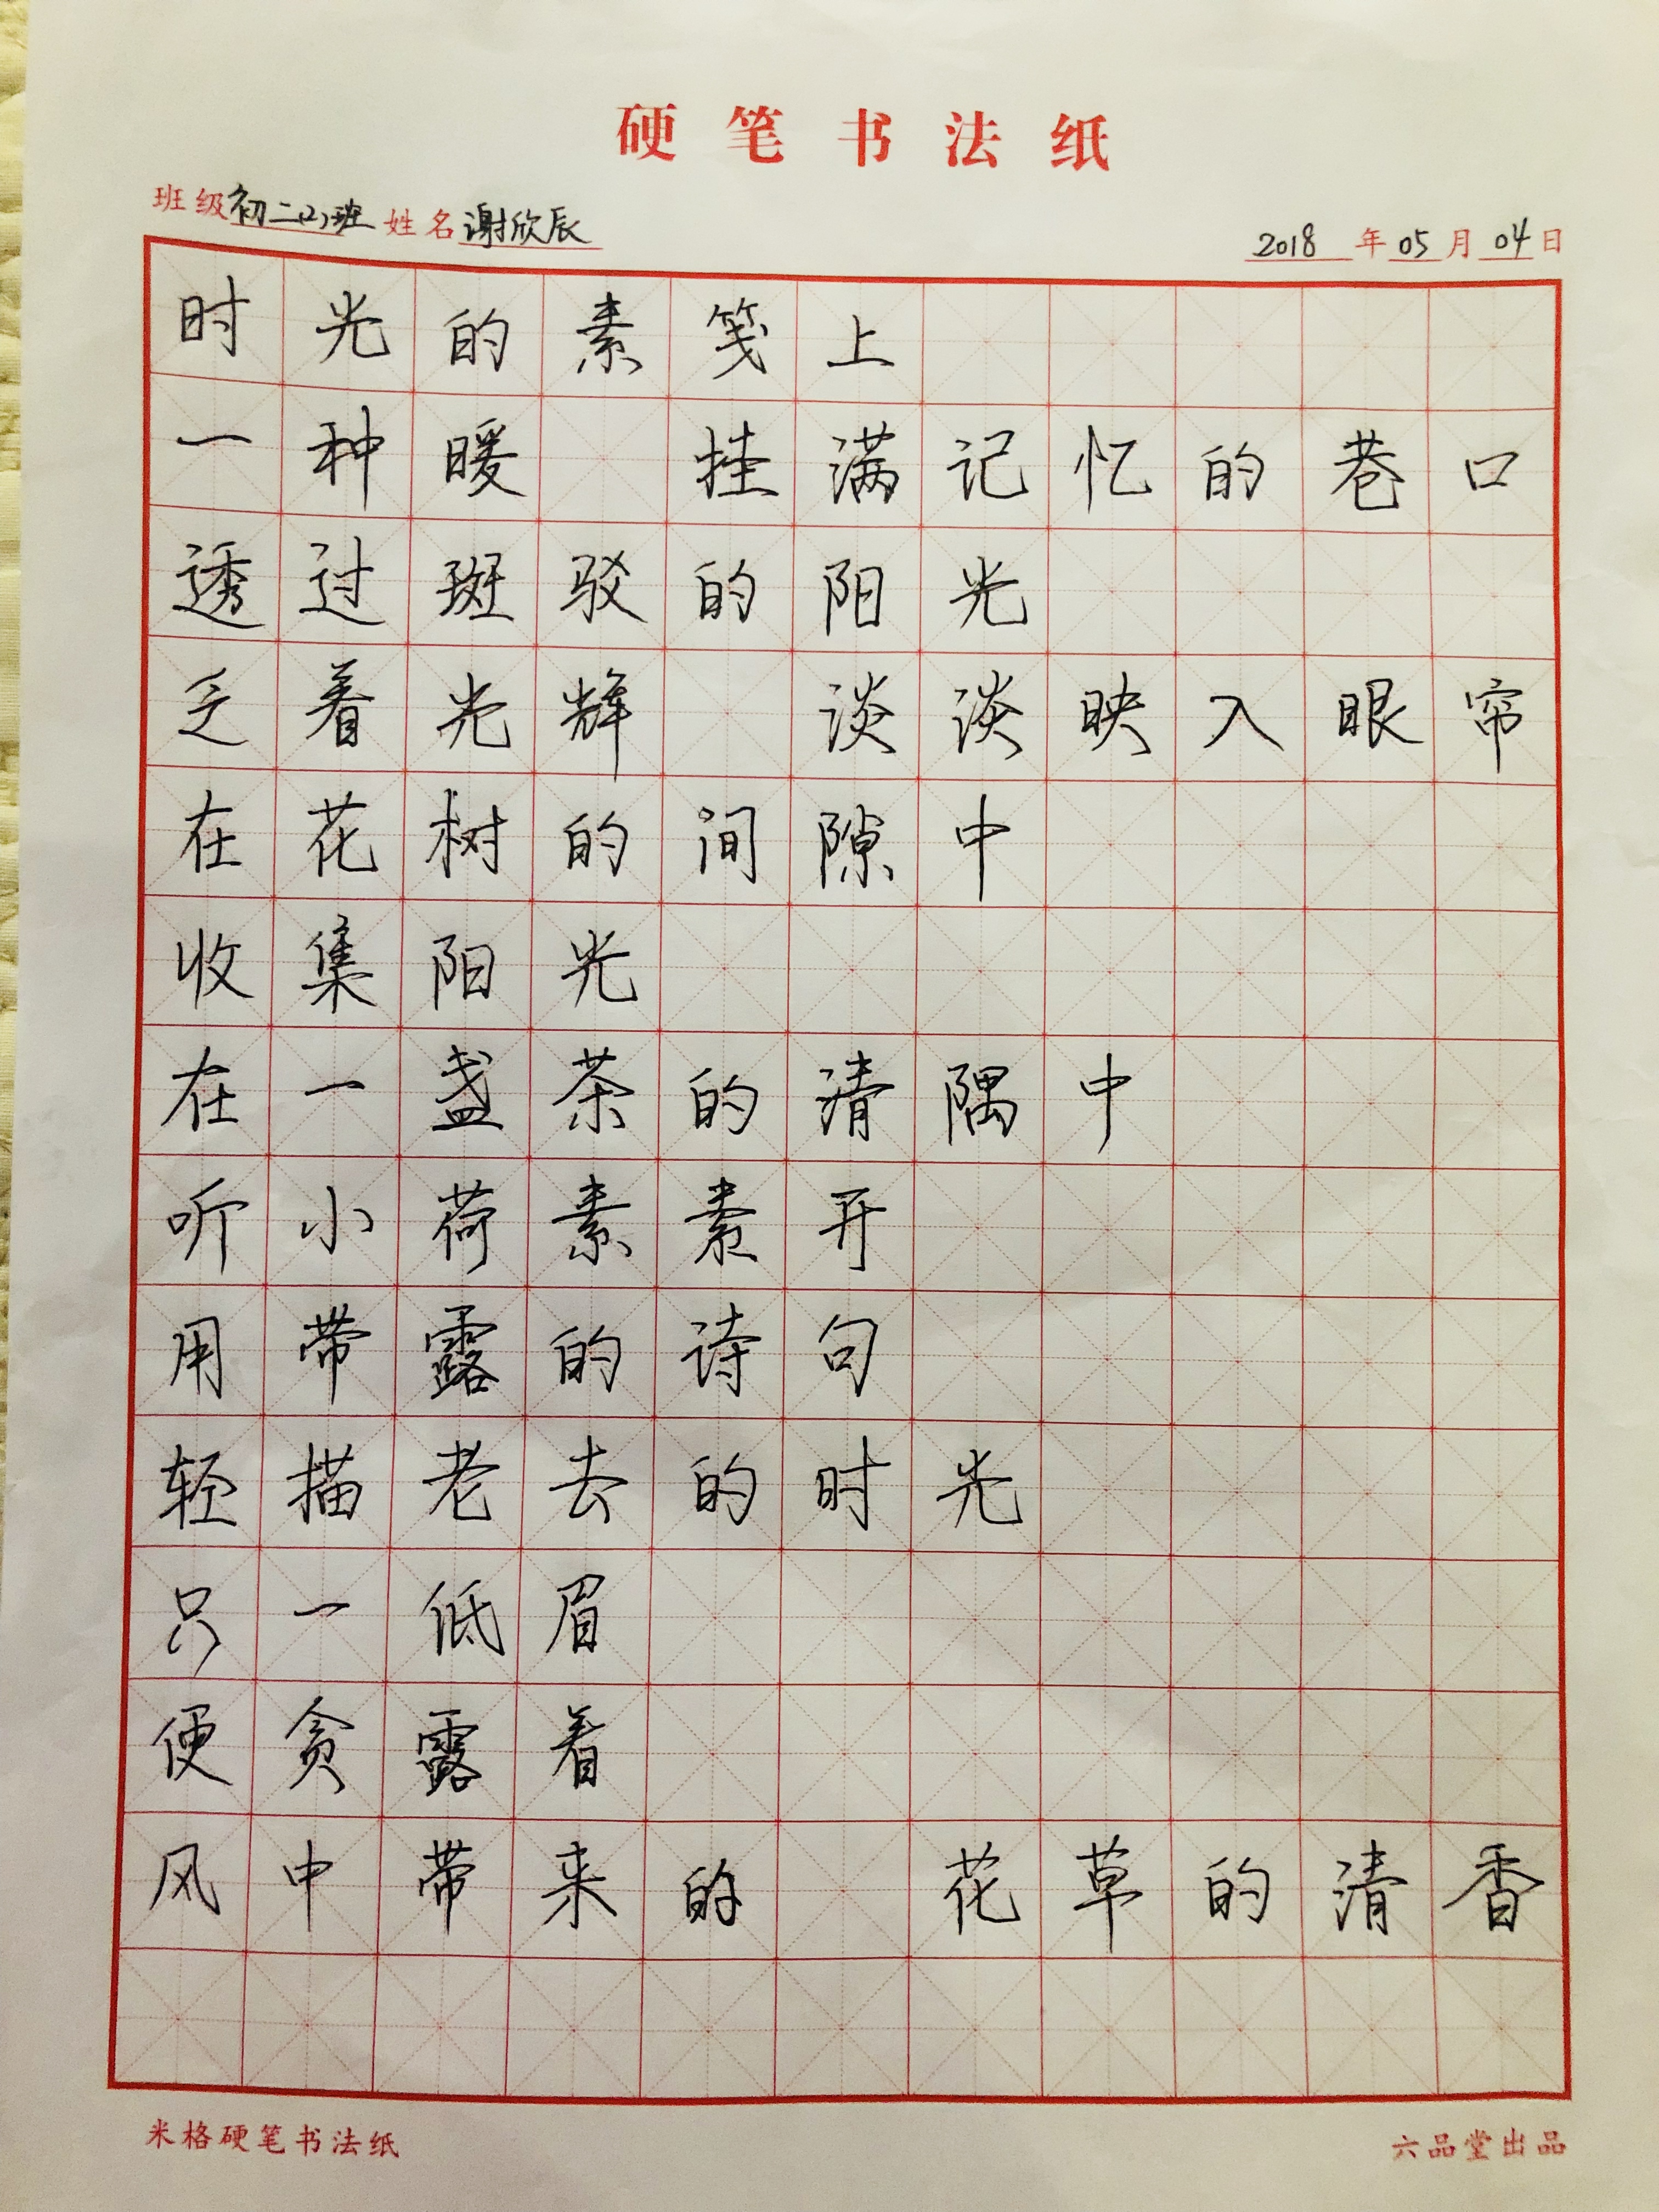 硬笔书法纸
班级 初二(2)班 姓名 谢欣辰 2018 年 05 月 04 日
时光的素笺上
一种暖 挂满记忆的巷口
透过斑驳的阳光
乏着光辉 淡淡映入眼帘
在花树的间隙中
收集阳光
在一盏茶的清隅中
听小荷素素开
用带露的诗句
轻描老去的时光
只一低眉
便贪露着
风中带来的 花草的清香
米格硬笔书法纸 六品堂出品